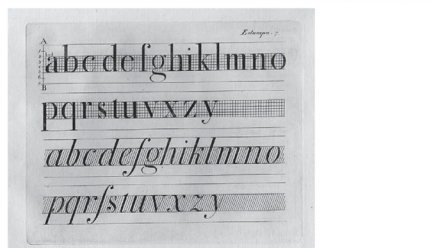 Estampa. 7
A
a b c d e f g h i k l m n o
B
p q r s t u v x z y
a b c d e f g h i k l m n o
p q r ſ s t u v x z y